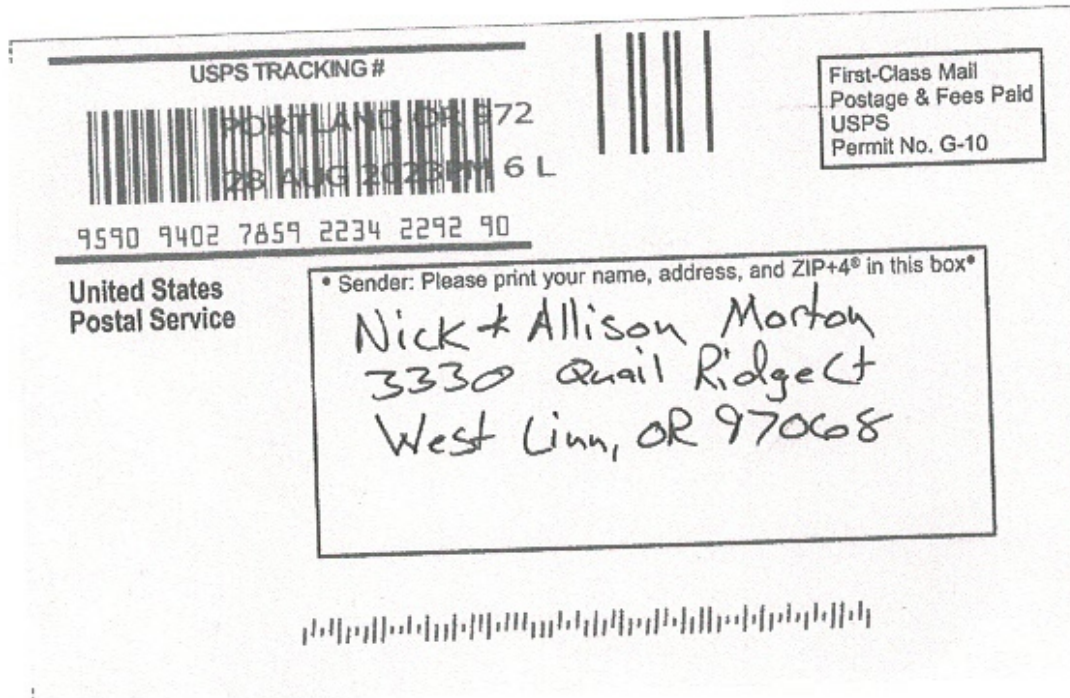 USPS TRACKING #
PORTLAND OR 972
28 AUG 2023PM 6 L
9590 9402 7859 2234 2292 90
First-Class Mail
Postage & Fees Paid
USPS
Permit No. G-10
United States
Postal Service
• Sender: Please print your name, address, and ZIP+4® in this box•
Nick & Allison Morton
3330 Quail Ridge Ct
West Linn, OR 97068